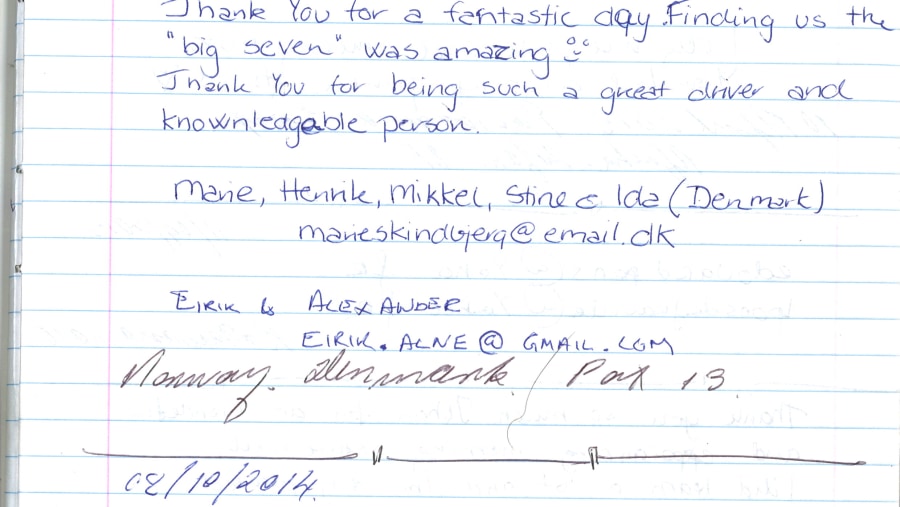 Thank You for a fantastic day. Finding us the
"big seven" was amazing
Thank You for being such a great driver and
knownledgeable person.
Marie, Henrik, Mikkel, Stine & Ida (Denmark)
marieskindbjerg@email.dk
EIRIK & ALEXANDER
EIRIK.ALNE@GMAIL.COM
Norway. Denmark / Pax 13
02/10/2014.